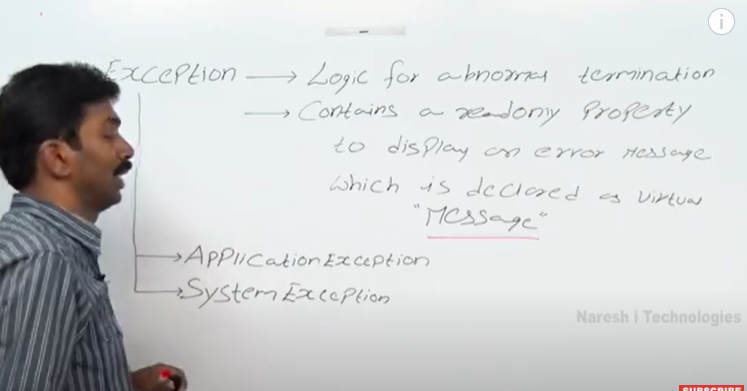 Exception → Logic for abnormal termination
→ Contains a readonly Property
to display an error Message
which is declared as virtual
"Message"
→ ApplicationException
→ SystemException
Naresh i Technologies
SUBSCRIBE
i